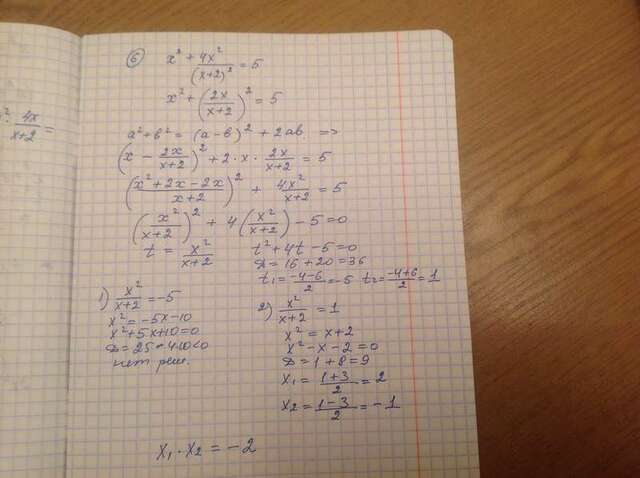 ² · 4x/(x+2) =
⑥ x² + 4x²/(x+2)² = 5
x² + (2x/(x+2))² = 5
a² + b² = (a - b)² + 2ab =>
(x - 2x/(x+2))² + 2·x·2x/(x+2) = 5
((x² + 2x - 2x)/(x+2))² + 4x²/(x+2) = 5
(x²/(x+2))² + 4(x²/(x+2)) - 5 = 0
t = x²/(x+2) t² + 4t - 5 = 0
D = 16 + 20 = 36
t₁ = (-4-6)/2 = -5 t₂ = (-4+6)/2 = 1
1) x²/(x+2) = -5
x² = -5x - 10
x² + 5x + 10 = 0
D = 25 - 4·10 < 0
нет реш.
2) x²/(x+2) = 1
x² = x + 2
x² - x - 2 = 0
D = 1 + 8 = 9
x₁ = (1+3)/2 = 2
x₂ = (1-3)/2 = -1
x₁ · x₂ = -2